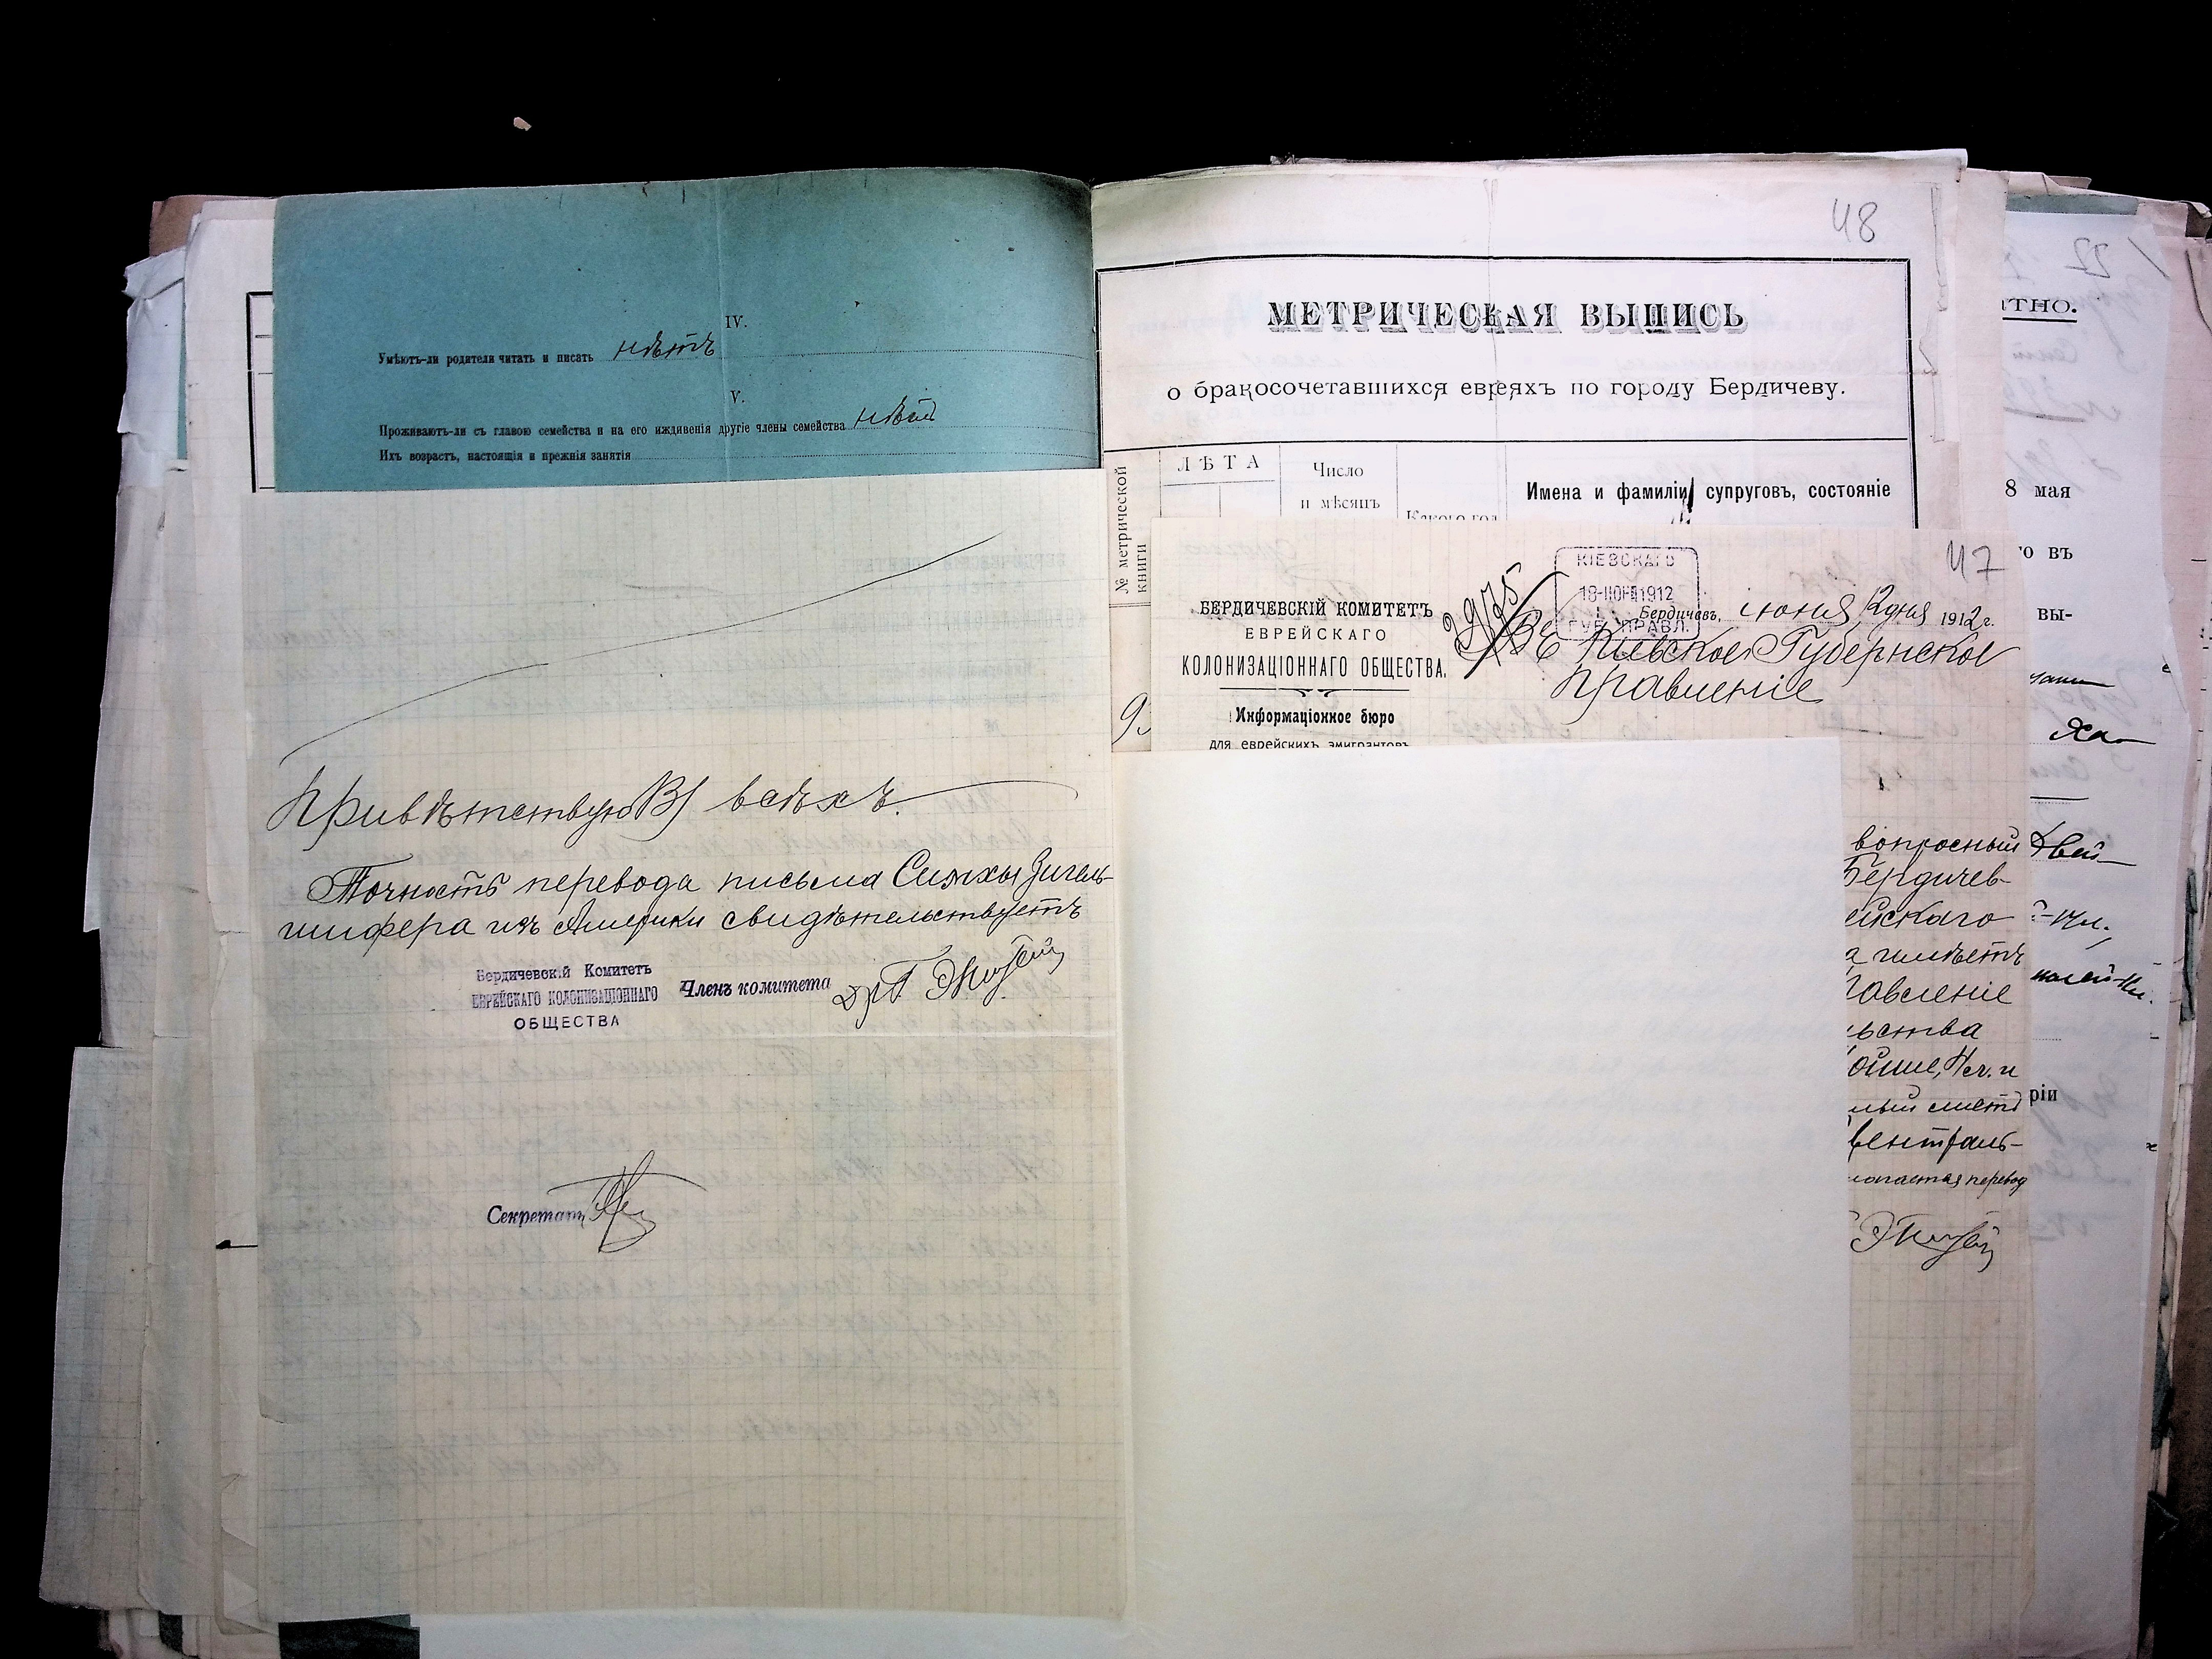 IV.
Умѣютъ-ли родители читать и писать нѣтъ
V.
Проживаютъ-ли съ главою семейства и на его иждивенія другіе члены семейства нѣтъ
Ихъ возрастъ, настоящія и прежнія занятія
Привѣтствую Вѣ всѣхъ.
Точность перевода письма Симхи Зигель-
шифера изъ Америки свидѣтельствуетъ
Бердичевскій Комитетъ
ЕВРЕЙСКАГО КОЛОНИЗАЦІОННАГО
ОБЩЕСТВА
Членъ комитета
Секретарь
48
МЕТРИЧЕСКАЯ ВЫПИСЬ
о бракосочетавшихся евреяхъ по городу Бердичеву.
№ метрической
книги
ЛѢТА
Число
и мѣсяцъ
Какого год
Имена и фамиліи супруговъ, состояніе
47
БЕРДИЧЕВСКІЙ КОМИТЕТЪ
ЕВРЕЙСКАГО
КОЛОНИЗАЦІОННАГО ОБЩЕСТВА.
Информаціонное бюро
для еврейскихъ эмигрантовъ
2975
КІЕВСКАГО
18 ІЮН 1912
ГУБ. ПРАВЛ.
Бердичевъ, іюня 12 дня 1912 г.
Въ Кіевское Губернское
Правленіе
вопросный
Бердичев-
ейскаго
а имѣетъ
равленіе
ьства
ный листъ
Централь-
лагается перевод
22
АТНО.
8 мая
о въ
вы-
Ха-
ріи